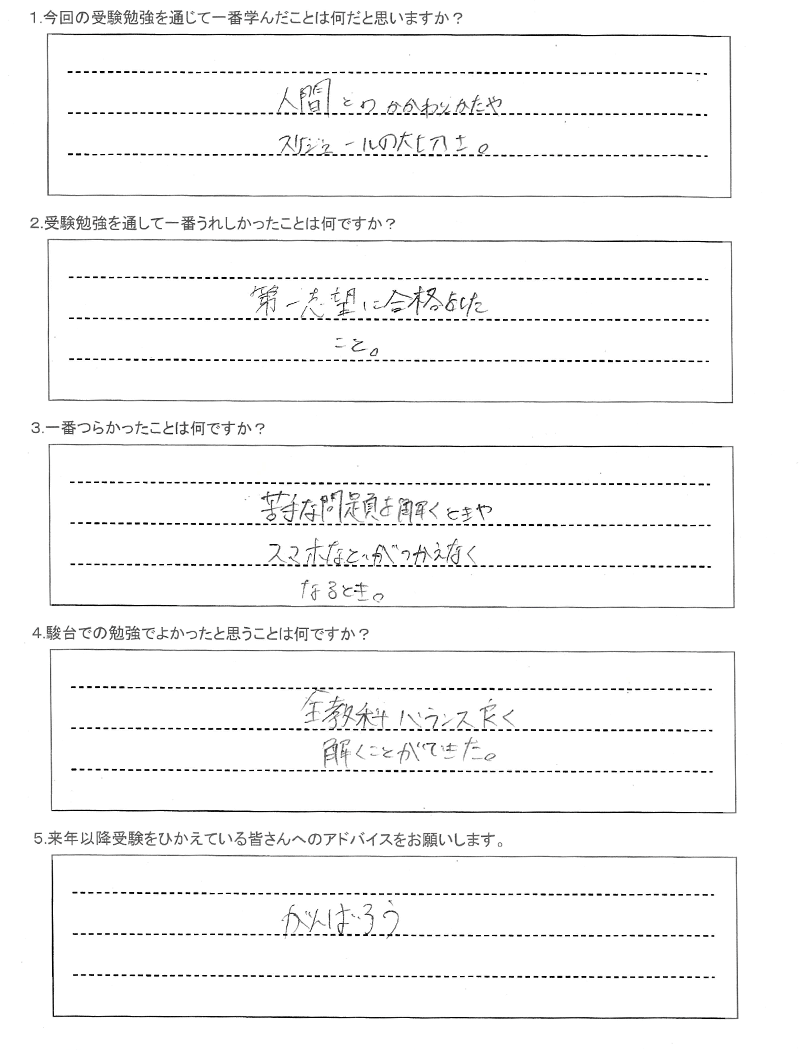 1.今回の受験勉強を通じて一番学んだことは何だと思いますか？
人間とのかかわりかたや
スケジュールの大切さ。
2.受験勉強を通して一番うれしかったことは何ですか？
第一志望に合格をした
こと。
3.一番つらかったことは何ですか？
苦手な問題を解くときや
スマホなどがつかえなく
なるとき。
4.駿台での勉強でよかったと思うことは何ですか？
全教科バランス良く
解くことができた。
5.来年以降受験をひかえている皆さんへのアドバイスをお願いします。
がんばろう